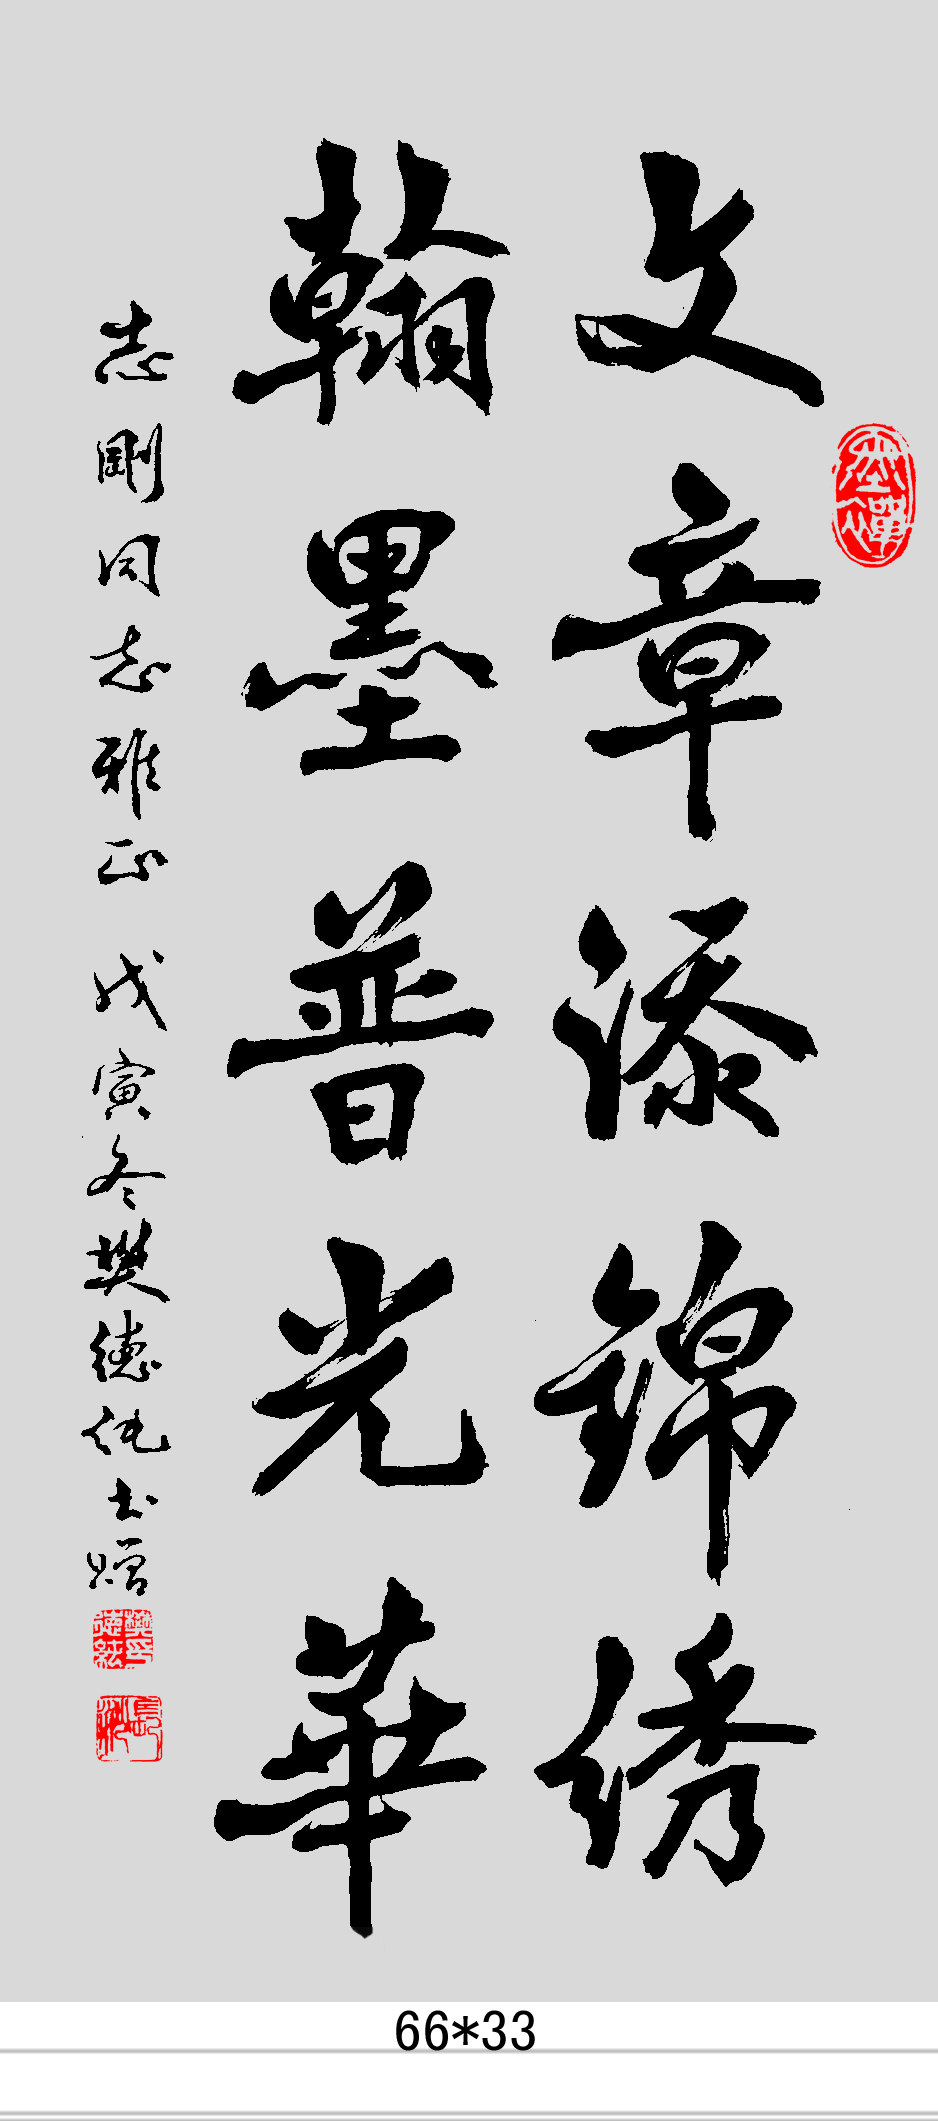 文章添錦绣
翰墨普光華
志剛同志雅正 戊寅冬樊德純书贈
66*33